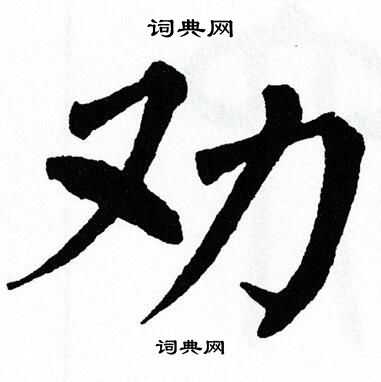 词典网
劝
词典网